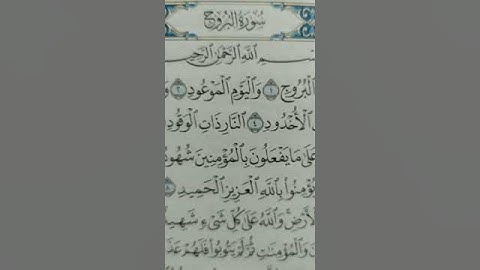 سُورَةُ البُرُوجِ
ـسْمِ ٱللَّهِ ٱلرَّحْمَٰنِ ٱلرَّحِيـ
ٱلْبُرُوجِ ١ وَٱلْيَوْمِ ٱلْمَوْعُودِ ٢ وَ
ٱلْأُخْدُودِ ٤ ٱلنَّارِ ذَاتِ ٱلْوَقُودِ
عَلَىٰ مَا يَفْعَلُونَ بِٱلْمُؤْمِنِينَ شُهُودٌ
يُؤْمِنُوا۟ بِٱللَّهِ ٱلْعَزِيزِ ٱلْحَمِيدِ ٨
لْأَرْضِ وَٱللَّهُ عَلَىٰ كُلِّ شَىْءٍ شَهِيدٌ
نَ وَٱلْمُؤْمِنَٰتِ ثُمَّ لَمْ يَتُوبُوا۟ فَلَهُمْ عَذَا